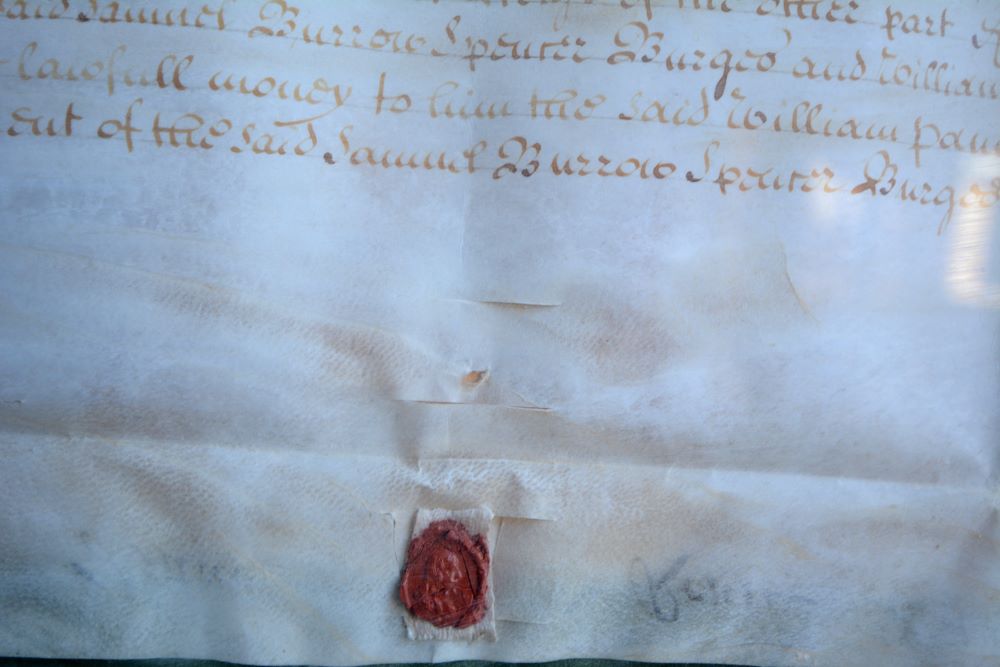 of the other part
said Samuel Burrow Spencer Burges and William
lawfull money to him the said William
ent of the said Samuel Burrow Spencer Burges